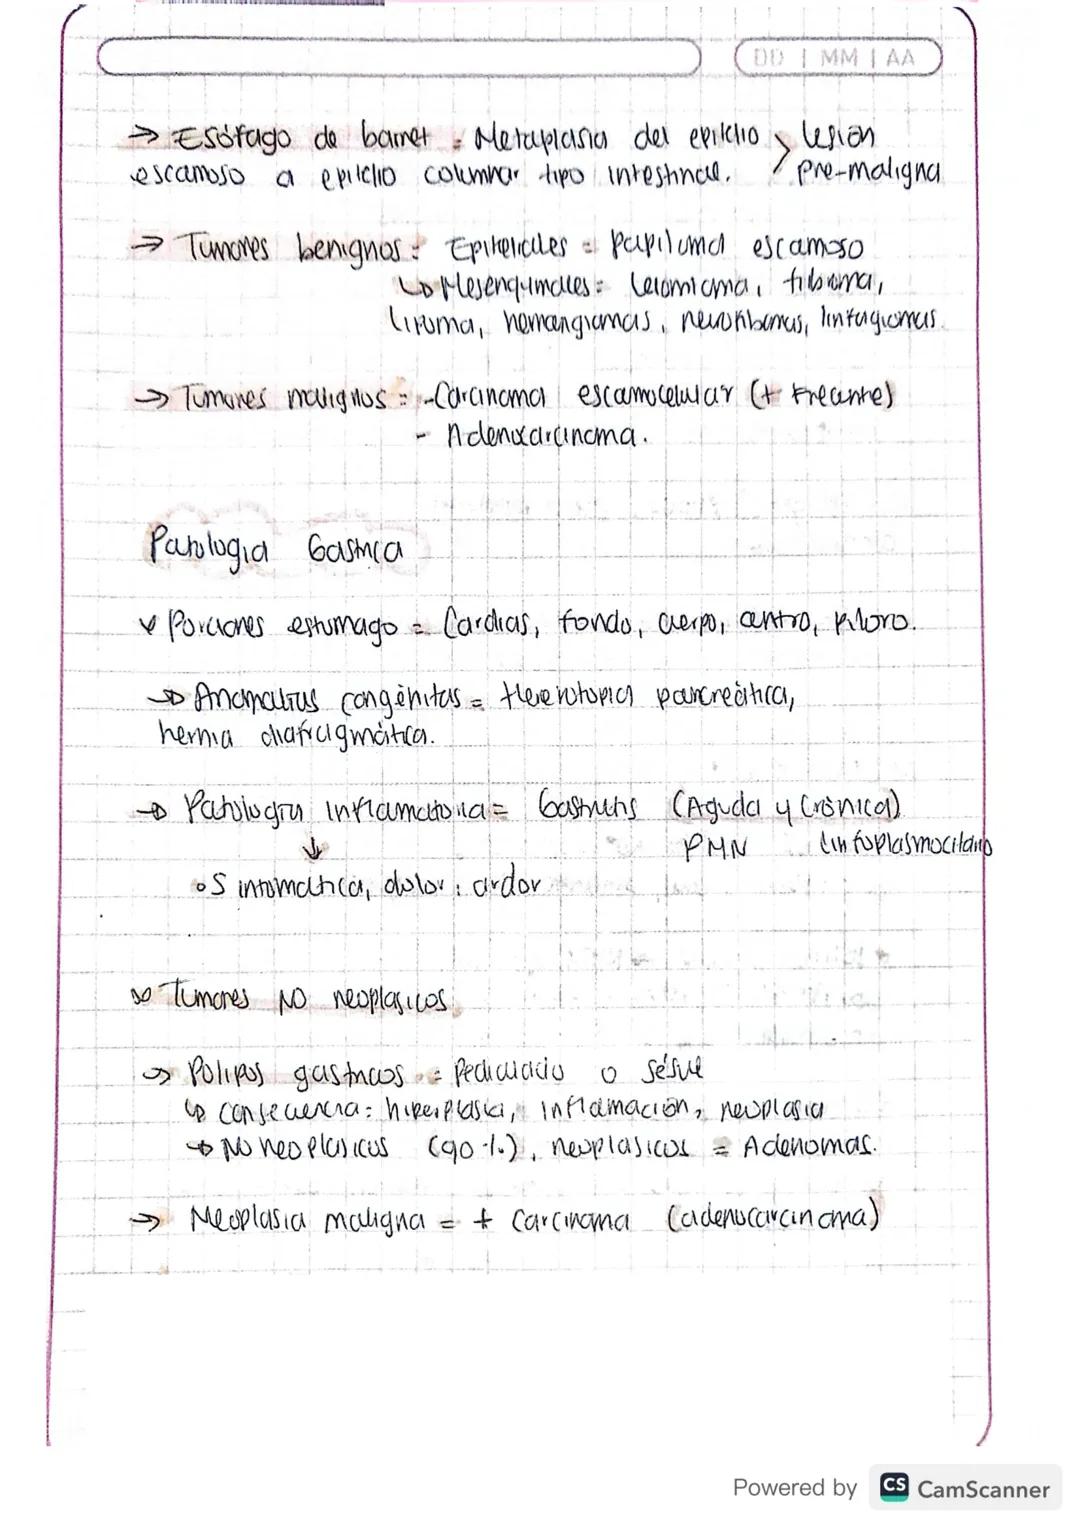 DD | MM | AA
→ Esófago de barret = Metaplasia del epitelio > Lesión
escamoso a epitelio columnar tipo intestinal. pre-maligna
→ Tumores benignos = Epiteliales = papiloma escamoso
↳ Mesenquimales = leiomioma, fibroma,
lipoma, hemangiomas, neurofibomas, linfagiomas.
→ Tumores malignos = - Carcinoma escamocelular (+ Frecante)
- Adenocarcinoma.
Patologia Gastrica
Porciones estomago = Cardias, fondo, cuerpo, antro, piloro.
→ Anomalias congénitas = Heterotopica pancreática,
hernia diafragmática.
→ Patologia inflamatoria = Gastritis (Aguda y Crónica)
↓ PMN Linfoplasmocitario
• Sintomatica, dolor, ardor
→ Tumores NO neoplasicos
→ Polipos gastricos = Pediculado o sésil
↳ consecuencia: hiperplasia, inflamación, neoplasia
→ No neoplasicos (90%), neoplasicos = Adenomas.
→ Neoplasia maligna = + Carcinoma (adenocarcinoma)
Powered by CS CamScanner